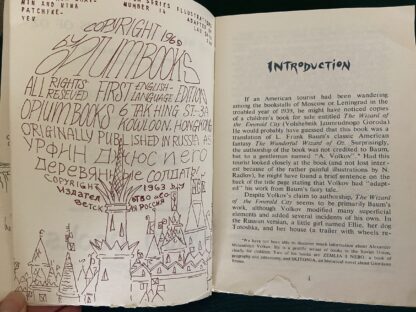 MIN AND NINA
PATCHIKE-
YEV
SERIES
NUMBER
ILLUSTR
ADAPT
LAD
COPYRIGHT 1969
BY
OPIUMBOOKS
ALL RIGHTS RESEVED FIRST ENGLISH-
LANGUAGE EDITION
OPIUM BOOKS 6 TAK HING ST. 8A
KOWLOON. HONGKONG
ORIGINALLY PUBLISHED IN RUSSIA AS
УРФИН ДЖЮС И ЕГО
ДЕРЕВЯННЫЕ СОЛДАТЫ
COPYRIGHT 1963 BY
ИЗДАТЕЛ СТВО «СО
ВЕТСК РОССИЯ
INTRODUCTION
If an American tourist had been wandering
among the bookstalls of Moscow or Leningrad in the
troubled year of 1939, he might have noticed copies
of a children's book for sale entitled The Wizard of
the Emerald City (Volshebnik Izumrudnogo Goroda).
He would probably have guessed that this book was a
translation of L. Frank Baum's classic American
fantasy The Wonderful Wizard of Oz. Surprisingly,
the authorship of the book was not credited to Baum,
but to a gentleman named "A. Volkov".* Had this
tourist looked closely at the book (and not lost inter-
est because of the rather painful illustrations by N.
Radlov), he might have found a brief sentence on the
back of the title page stating that Volkov had "adapt-
ed" his work from Baum's fairy tale.
Despite Volkov's claim to authorship, The Wizard of
the Emerald City seems to be primarily Baum's
work, although Volkov modified many superficial
elements and added several incidents of his own. In
the Russian version, a little girl named Ellie, her dog
Totoshka, and her house (a trailer with wheels re-
*We have not been able to discover much information about Alexander
Melentievich Volkov. He is a prolific writer of books in the Soviet Union,
chiefly for children. Two of his books are ZEMLIA I NEBO, a book of
geography and astronomy, and
1